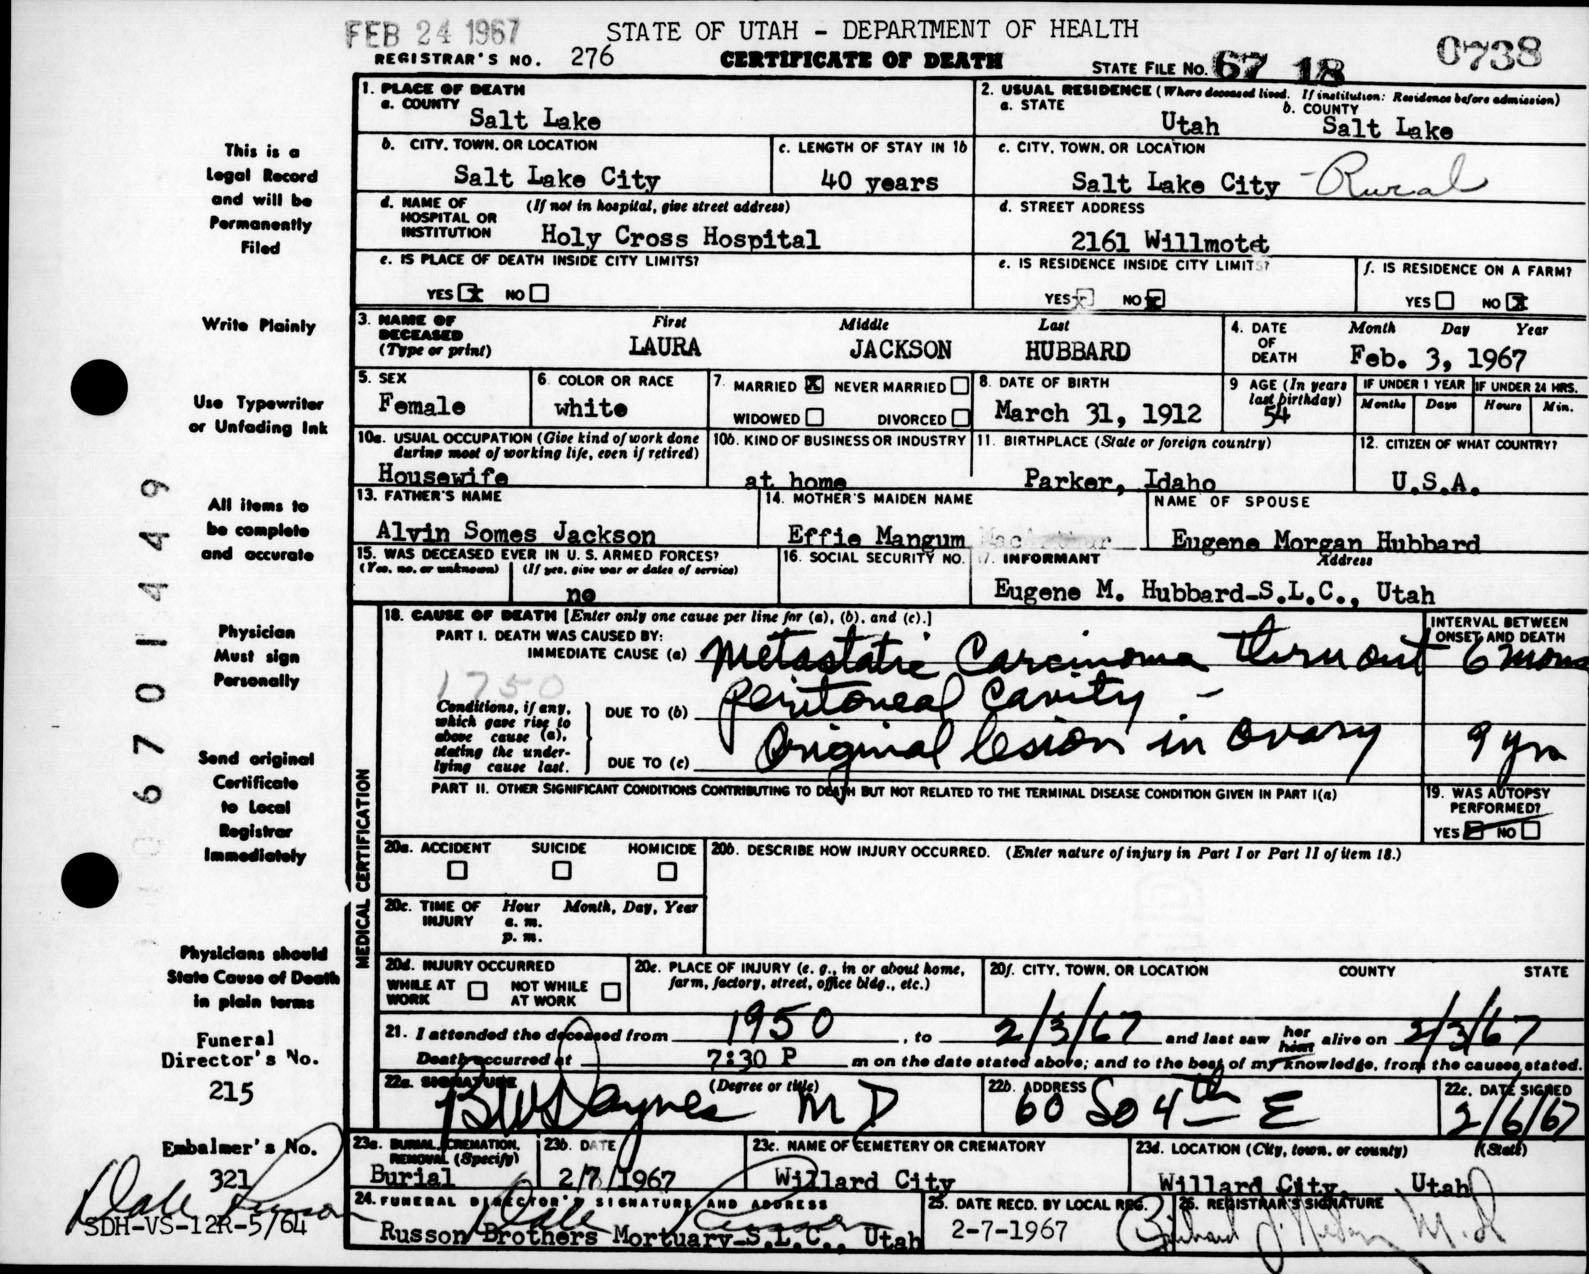 FEB 24 1967
STATE OF UTAH - DEPARTMENT OF HEALTH
REGISTRAR'S NO. 276
CERTIFICATE OF DEATH
STATE FILE NO. 67 18 0738
1. PLACE OF DEATH
a. COUNTY
Salt Lake
2. USUAL RESIDENCE (Where deceased lived. If institution: Residence before admission)
a. STATE
Utah
b. COUNTY
Salt Lake
b. CITY, TOWN, OR LOCATION
Salt Lake City
c. LENGTH OF STAY IN 1b
40 years
c. CITY, TOWN, OR LOCATION
Salt Lake City - Rural
d. NAME OF HOSPITAL OR INSTITUTION
(If not in hospital, give street address)
Holy Cross Hospital
d. STREET ADDRESS
2161 Willmott
e. IS PLACE OF DEATH INSIDE CITY LIMITS?
YES x NO
e. IS RESIDENCE INSIDE CITY LIMITS?
YES x NO x
f. IS RESIDENCE ON A FARM?
YES NO x
3. NAME OF DECEASED
(Type or print)
First Middle Last
LAURA JACKSON HUBBARD
4. DATE OF DEATH
Month Day Year
Feb. 3, 1967
5. SEX
Female
6. COLOR OR RACE
white
7. MARRIED X NEVER MARRIED
WIDOWED DIVORCED
8. DATE OF BIRTH
March 31, 1912
9 AGE (In years last birthday)
54
IF UNDER 1 YEAR
Months Days
IF UNDER 24 HRS.
Hours Min.
10a. USUAL OCCUPATION (Give kind of work done during most of working life, even if retired)
Housewife
10b. KIND OF BUSINESS OR INDUSTRY
at home
11. BIRTHPLACE (State or foreign country)
Parker, Idaho
12. CITIZEN OF WHAT COUNTRY?
U.S.A.
13. FATHER'S NAME
Alvin Somes Jackson
14. MOTHER'S MAIDEN NAME
Effie Mangum
NAME OF SPOUSE
Eugene Morgan Hubbard
15. WAS DECEASED EVER IN U. S. ARMED FORCES?
(Yes, no, or unknown) (If yes, give war or dates of service)
no
16. SOCIAL SECURITY NO.
17. INFORMANT Address
Eugene M. Hubbard-S.L.C., Utah
MEDICAL CERTIFICATION
18. CAUSE OF DEATH [Enter only one cause per line for (a), (b), and (c).]
PART I. DEATH WAS CAUSED BY:
IMMEDIATE CAUSE (a) Metastatic Carcinoma thru out
1750
Conditions, if any, which gave rise to above cause (a), stating the underlying cause last.
DUE TO (b) peritoneal cavity -
DUE TO (c) Original lesion in ovary
INTERVAL BETWEEN ONSET AND DEATH
6 mons
9 yrs
PART II. OTHER SIGNIFICANT CONDITIONS CONTRIBUTING TO DEATH BUT NOT RELATED TO THE TERMINAL DISEASE CONDITION GIVEN IN PART I(a)
19. WAS AUTOPSY PERFORMED?
YES NO
20a. ACCIDENT SUICIDE HOMICIDE
20b. DESCRIBE HOW INJURY OCCURRED. (Enter nature of injury in Part I or Part II of item 18.)
20c. TIME OF INJURY
Hour Month, Day, Year
a. m.
p. m.
20d. INJURY OCCURRED
WHILE AT WORK NOT WHILE AT WORK
20e. PLACE OF INJURY (e. g., in or about home, farm, factory, street, office bldg., etc.)
20f. CITY, TOWN, OR LOCATION COUNTY STATE
21. I attended the deceased from 1950, to 2/3/67 and last saw her him alive on 2/3/67
Death occurred at 7:30 P m on the date stated above; and to the best of my knowledge, from the causes stated.
22a. SIGNATURE (Degree or title)
M D
22b. ADDRESS
60 So 4th E
22c. DATE SIGNED
2/6/67
23a. BURIAL, CREMATION, REMOVAL (Specify)
Burial
23b. DATE
2/7/1967
23c. NAME OF CEMETERY OR CREMATORY
Willard City
23d. LOCATION (City, town, or county) (State)
Willard City, Utah
24. FUNERAL DIRECTOR'S SIGNATURE AND ADDRESS
Dale Russon
Russon Brothers Mortuary-S.L.C., Utah
25. DATE RECD. BY LOCAL REG.
2-7-1967
26. REGISTRAR'S SIGNATURE
M.D
This is a
Legal Record
and will be
Permanently
Filed
Write Plainly
Use Typewriter
or Unfading Ink
All items to
be complete
and accurate
Physician
Must sign
Personally
Send original
Certificate
to Local
Registrar
Immediately
Physicians should
State Cause of Death
in plain terms
Funeral
Director's No.
215
Embalmer's No.
321
Dale Russon
SDH-VS-12R-5/64
0 6 7 0 1 4 4 9